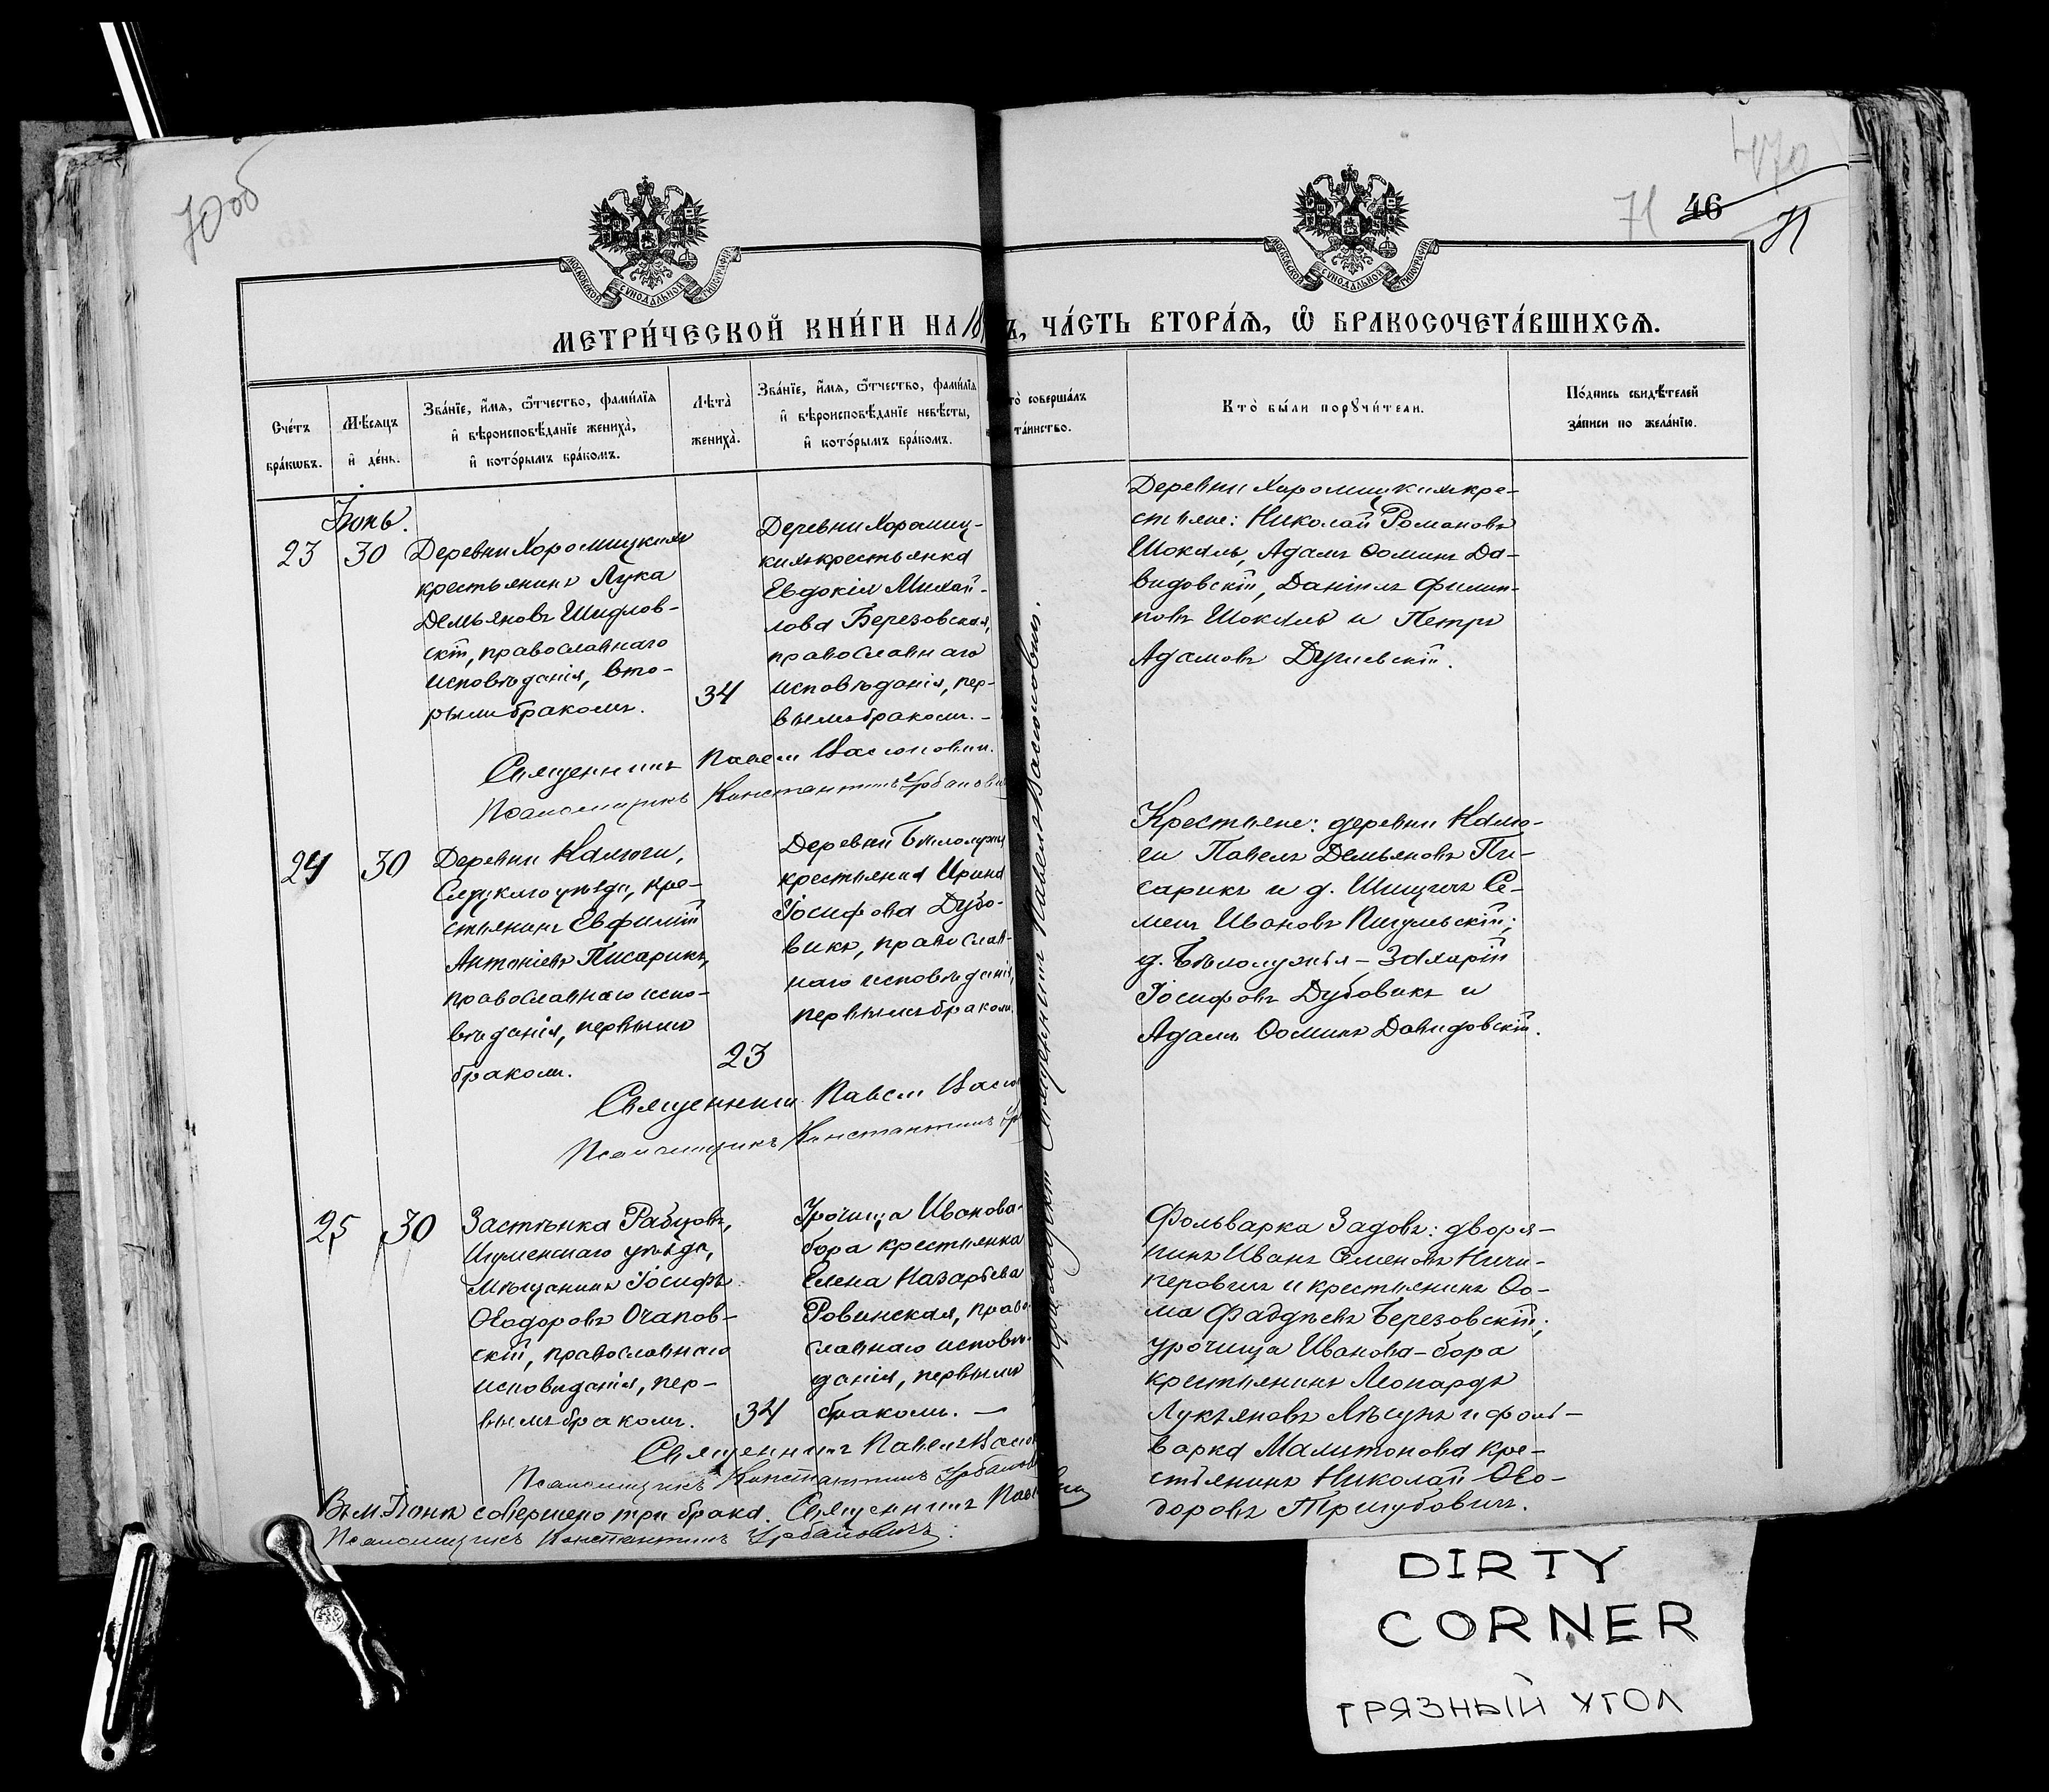 70 об
71
46
71
МОСКОВСКОЙ СѴНОДАЛЬНОЙ ТИПОГРАФІИ
МОСКОВСКОЙ СѴНОДАЛЬНОЙ ТИПОГРАФІИ
МЕТРИ́ЧЕСКОЙ КНИ́ГИ НА 18
Ъ, ЧА́СТЬ ВТОРА́Ѧ, Ѿ БРАКОСОЧЕТА́ВШИХСѦ.
Сче́тъ бра́кѡвъ.
Мѣ́сяцъ и҆ де́нь.
Зва́нїе, и҆́мѧ, ѻ҆́тчество, фами́лїѧ
и҆ вѣроисповѣ́данїе жениха̀,
и҆ кото́рымъ бра́комъ.
Лѣта̀
жениха̀.
Зва́нїе, и҆́мѧ, ѻ҆́тчество, фами́лїѧ
и҆ вѣроисповѣ́данїе невѣ́сты,
и҆ кото́рымъ бра́комъ.
то̀ соверша́лъ
та́инство.
Кто̀ бы́ли порꙋчи́тели.
По́дпись свидѣ́телей
за́писи по жела́нїю.
Іюнь.
23
30
Деревни Хоромицкихъ
крестьянинъ Лука
Демьяновъ Шидлов-
скій, православнаго
исповѣданія, вто-
рымъ бракомъ.
34
Деревни Хоромиц-
кихъ крестьянка
Евдокія Михай-
лова Березовская,
православнаго
исповѣданія, пер-
вымъ бракомъ. –
Деревни Хоромицкихъ кре-
стьяне: Николай Романовъ
Шокаль, Адамъ Ѳоминъ Да-
видовскій, Даніилъ Филип-
повъ Шокаль и Петръ
Адамовъ
Священникъ Павелъ
Псаломщикъ Константинъ Урбанови
24
30
Деревни Калюги,
Слуцкаго уѣзда, кре-
стьянинъ Евфимій
Антоніевъ Писарикъ,
православнаго испо-
вѣданія, первымъ
бракомъ.
23
Деревни Бѣлолужья
крестьянка Ирина
Іосифова Дубо-
викъ, православ-
наго исповѣданія,
первымъ бракомъ.
Крестьяне: деревни Калю-
ги Павелъ Демьяновъ Пи-
сарикъ и д. Шищичъ Се-
менъ Ивановъ Пигульскій;
д. Бѣлолужья – Захарій
Іосифовъ Дубовикъ и
Адамъ Ѳоминъ Давидовскій.
Священникъ Павелъ
Псаломщикъ Константинъ Ур
25
30
Застѣнка Рабцовъ,
Игуменскаго уѣзда,
мѣщанинъ Іосифъ
Ѳеодоровъ Очапов-
скій, православнаго
исповѣданія, пер-
вымъ бракомъ.
34
Урочища Иванова-
бора крестьянка
Елена Назарьева
Ровинская, право-
славнаго исповѣ-
данія, первымъ
бракомъ. –
Фольварка Задовъ: дворя-
нинъ Иванъ Семеновъ Ничи-
перовичъ и крестьянинъ Ѳо-
ма Фаддѣевъ Березовскій;
урочища Иванова-бора
крестьянинъ Леонардъ
Лукьяновъ Лѣсунъ и фоль-
варка Малитонова кре-
стьянинъ Николай Ѳео-
доровъ Тригубовичъ.
Священникъ Павелъ
Псаломщикъ Константинъ Урбанов
Въ м. Іюнѣ совершено три брака. Священникъ Павел
Псаломщикъ Константинъ Урбановичъ.
Священникъ Павелъ
DIRTY
CORNER
ГРЯЗНЫЙ УГОЛ